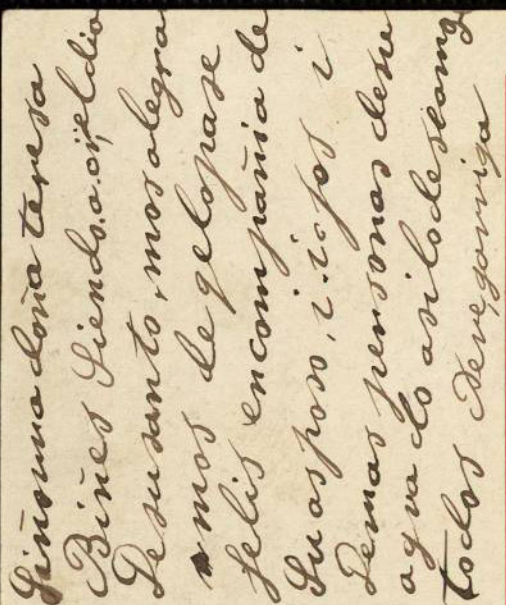 Siñouna doña teresa
Biñes Siendo.a.oi,eldia
De susanto, mos alegra
mos de qelopase
felis encompañia de
Su asposo, i.ijos i
Demas personas desu
agrado asilodeseamo
todos